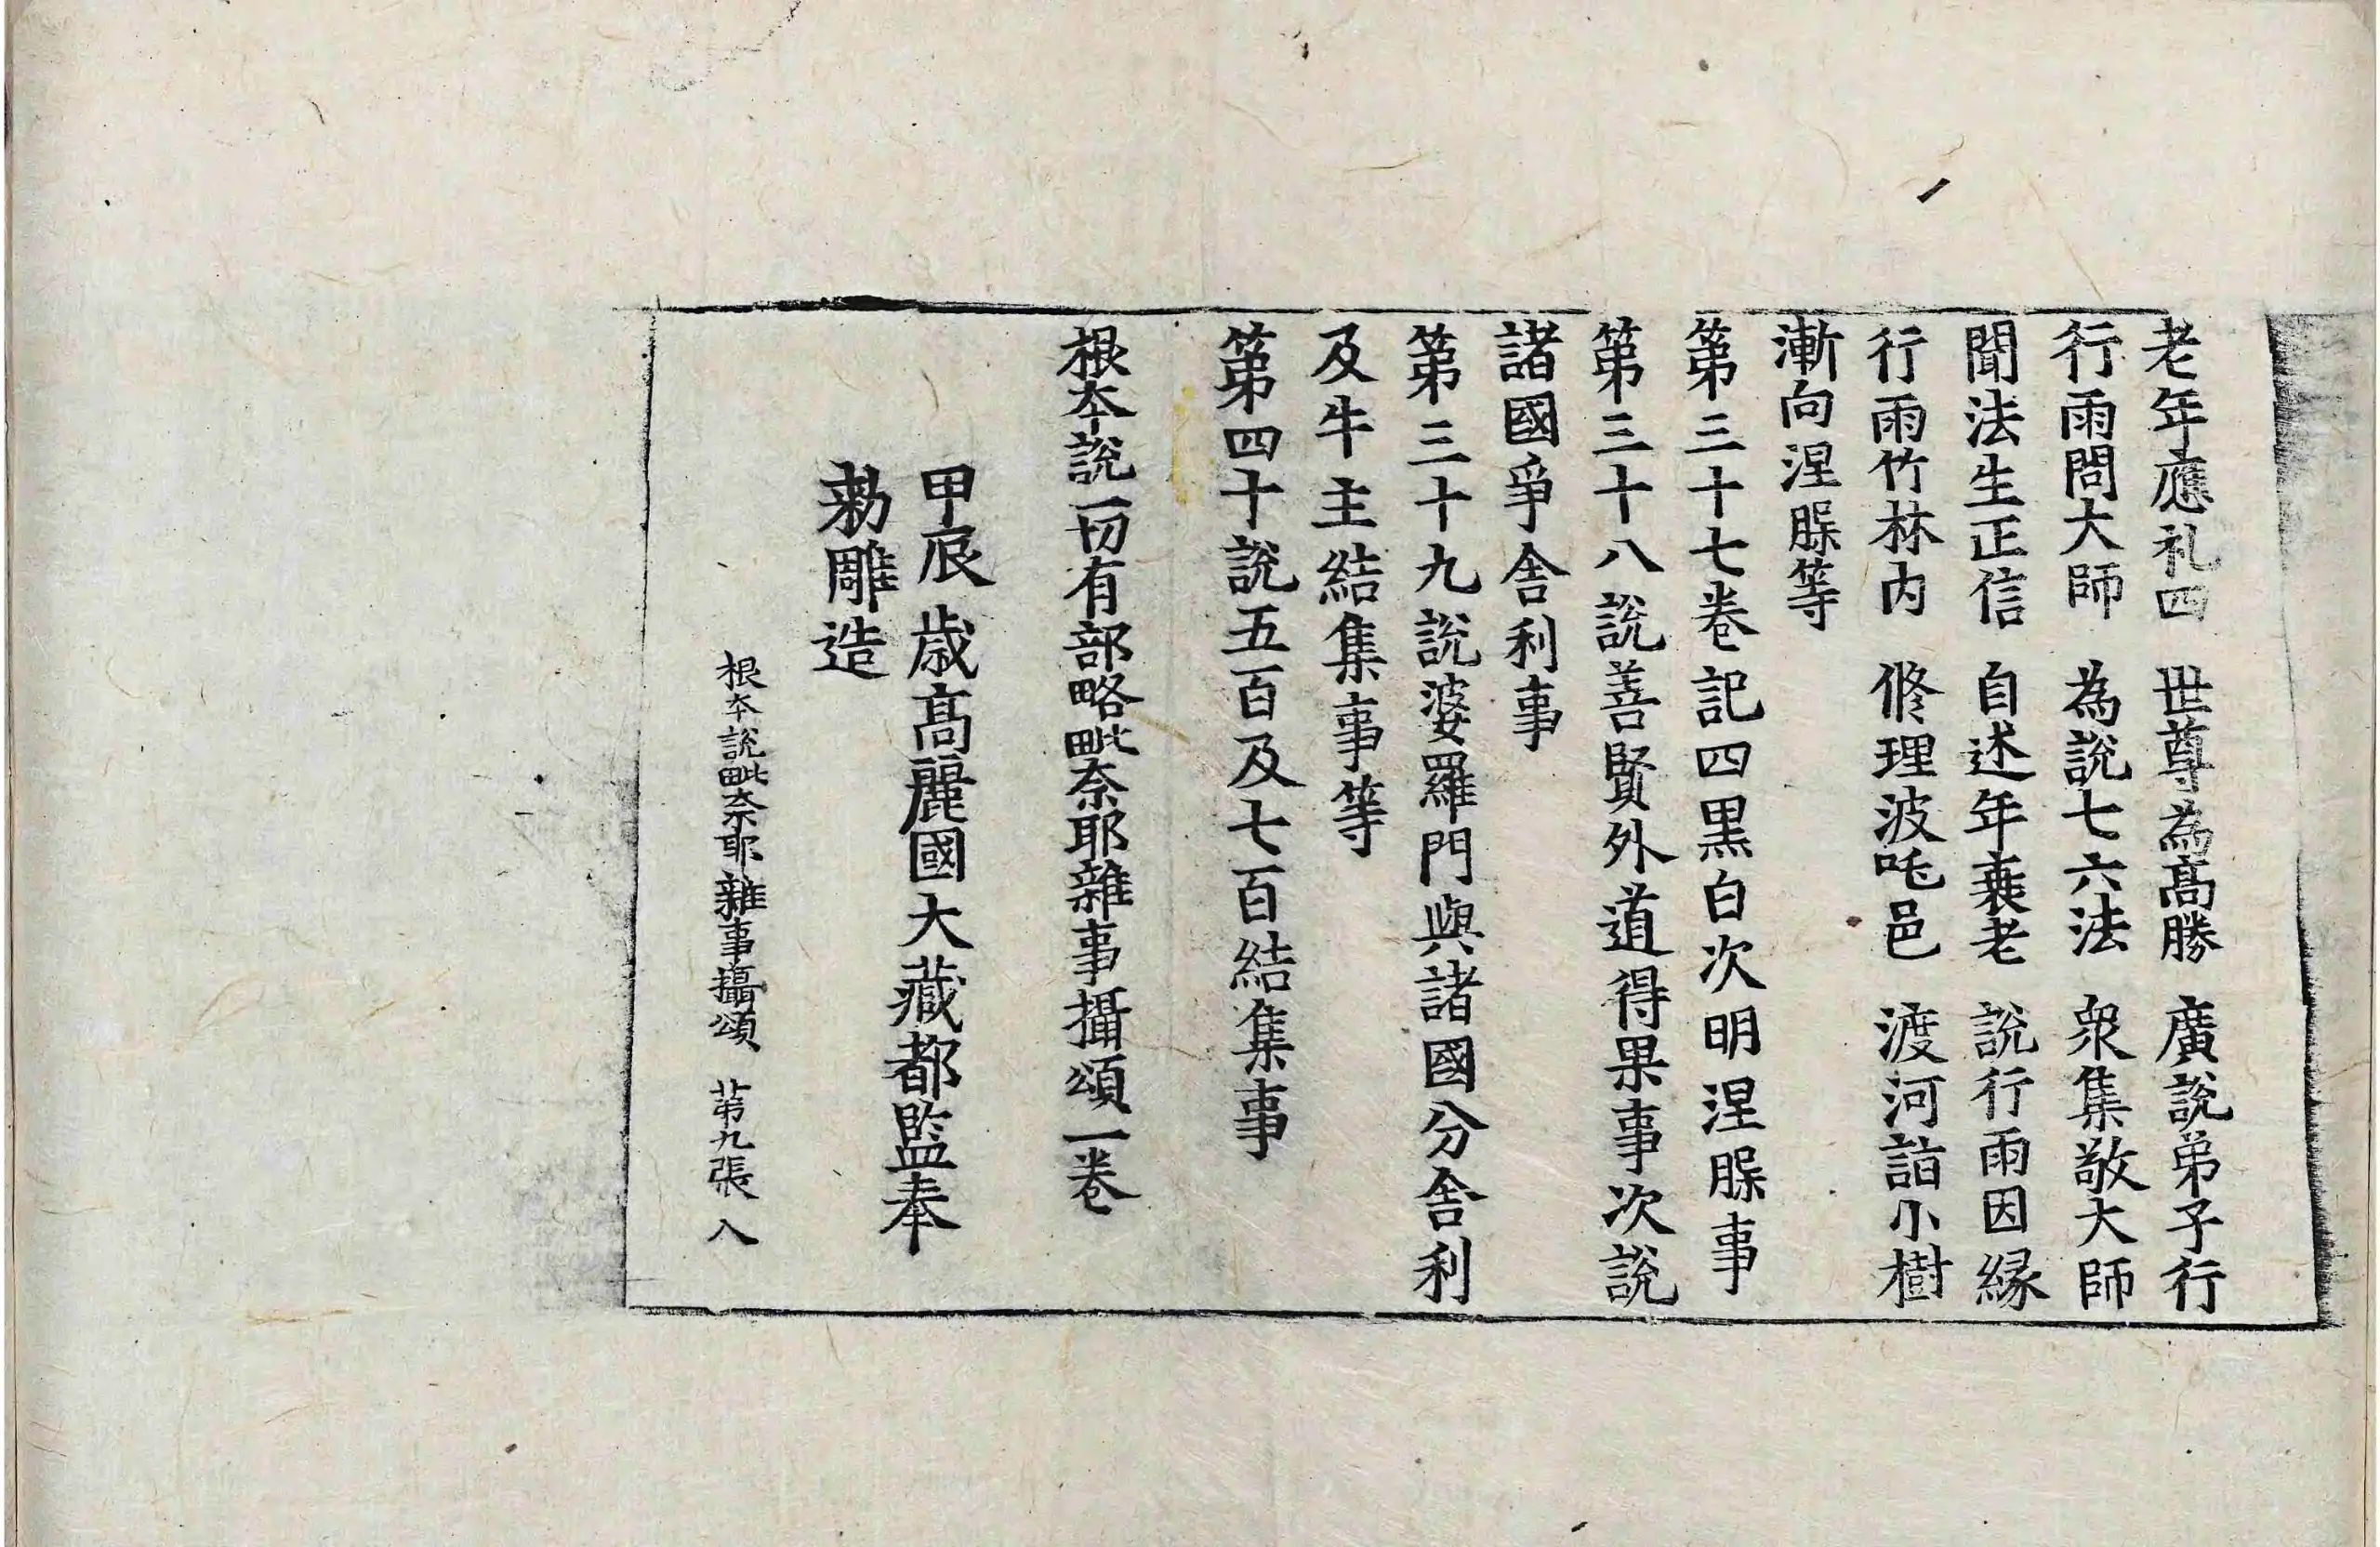 老年應礼四　世尊為髙勝　廣說弟子行
行雨問大師　為說七六法　衆集敬大師
聞法生正信　自述年衰老　說行雨因縁
行雨竹林內　修理波吒邑　渡河詣小樹
漸向涅脲等
第三十七卷記四黒白次明涅脲事
第三十八說善賢外道得果事次說
諸國爭舍利事
第三十九說婆羅門與諸國分舍利
及牛主結集事等
第四十說五百及七百結集事
根本說一切有部略毗奈耶雜事攝頌一卷
甲辰歳髙麗國大藏都監奉
勑雕造
根本說毗奈耶雜事攝頌　苐九張　入